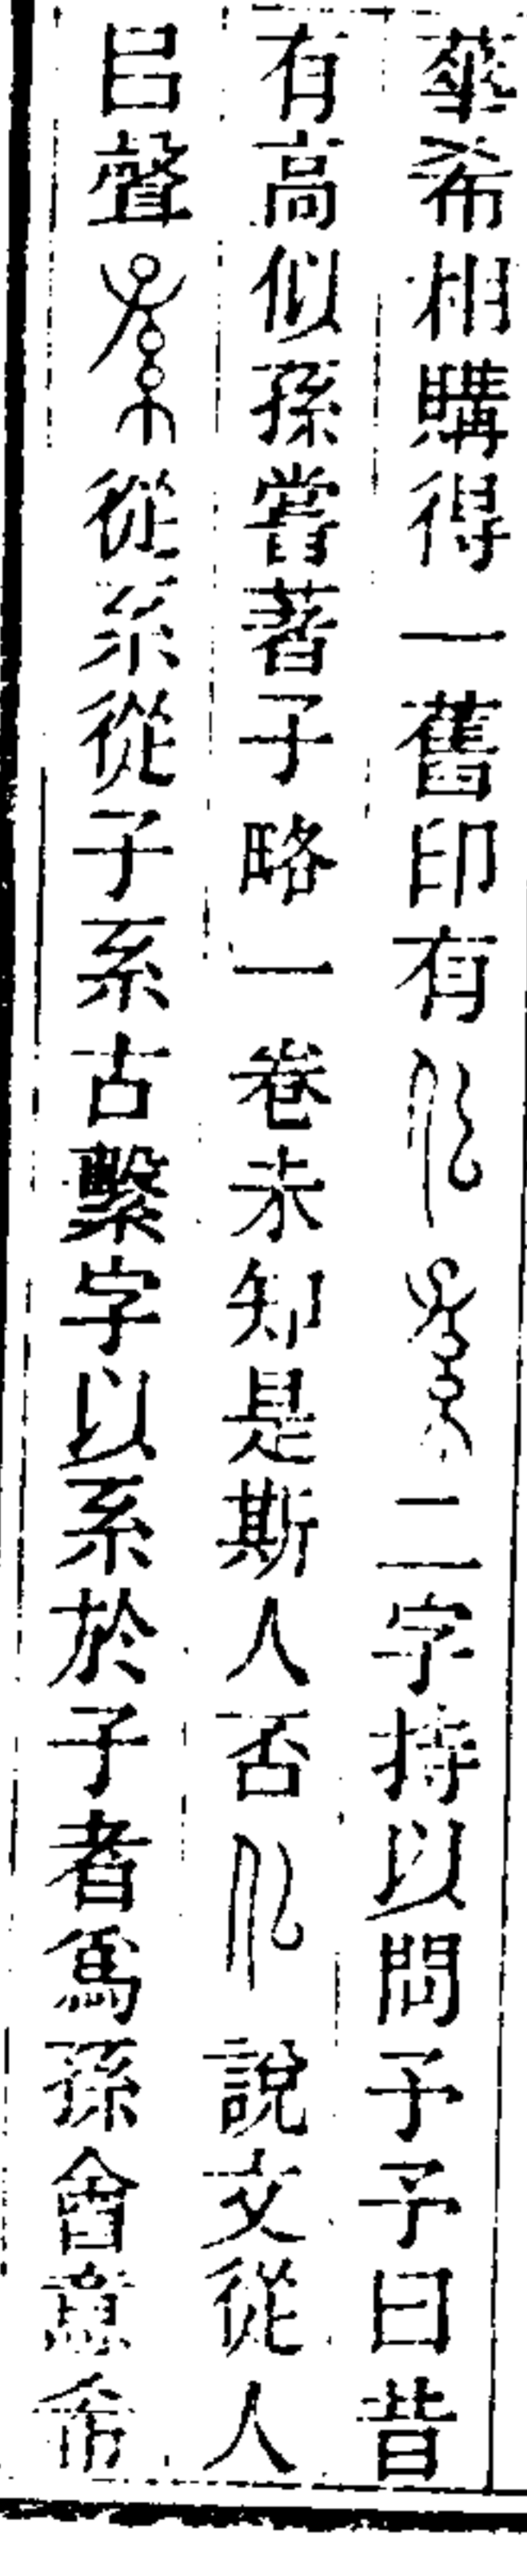 華希相購得一舊印有二字持以問予予曰昔
有高似孫嘗著子略一卷未知是斯人否說文從人
㠯聲從系從子系古繫字以系於子者爲孫會意希